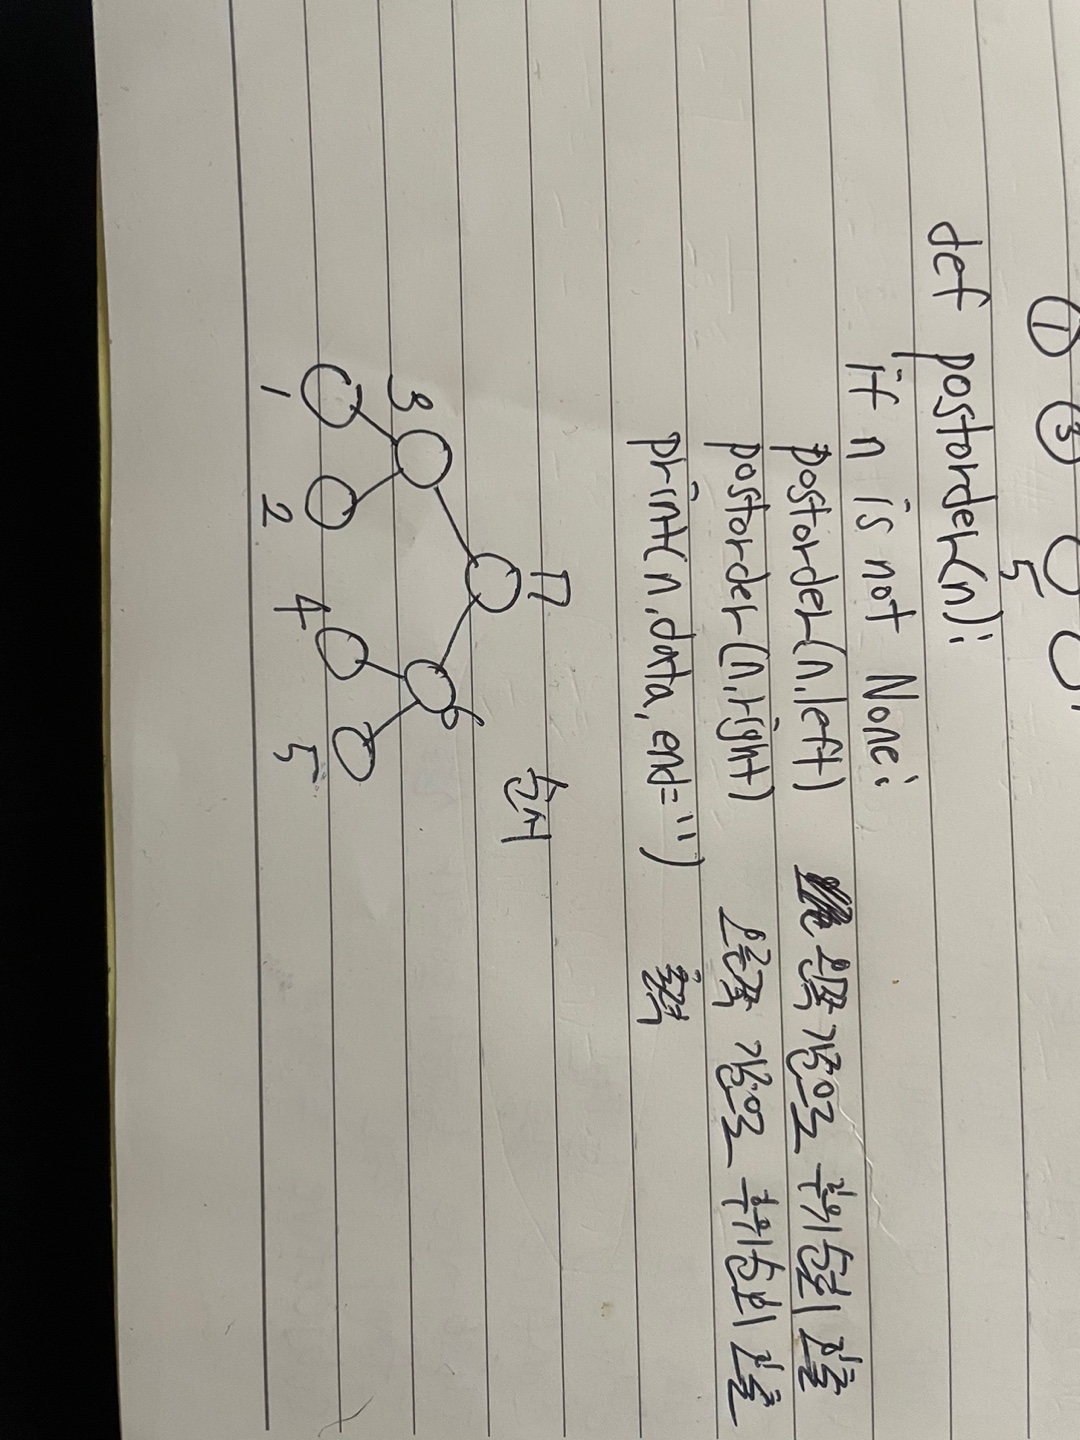 ① ③
5
def postorder(n):
if n is not None:
postorder(n.left) 왼쪽 기준으로 후위순회 호출
postorder(n.right) 오른쪽 기준으로 후위순회 호출
print(n.data, end='') 출력
7 순서
3 6
1 2 4 5